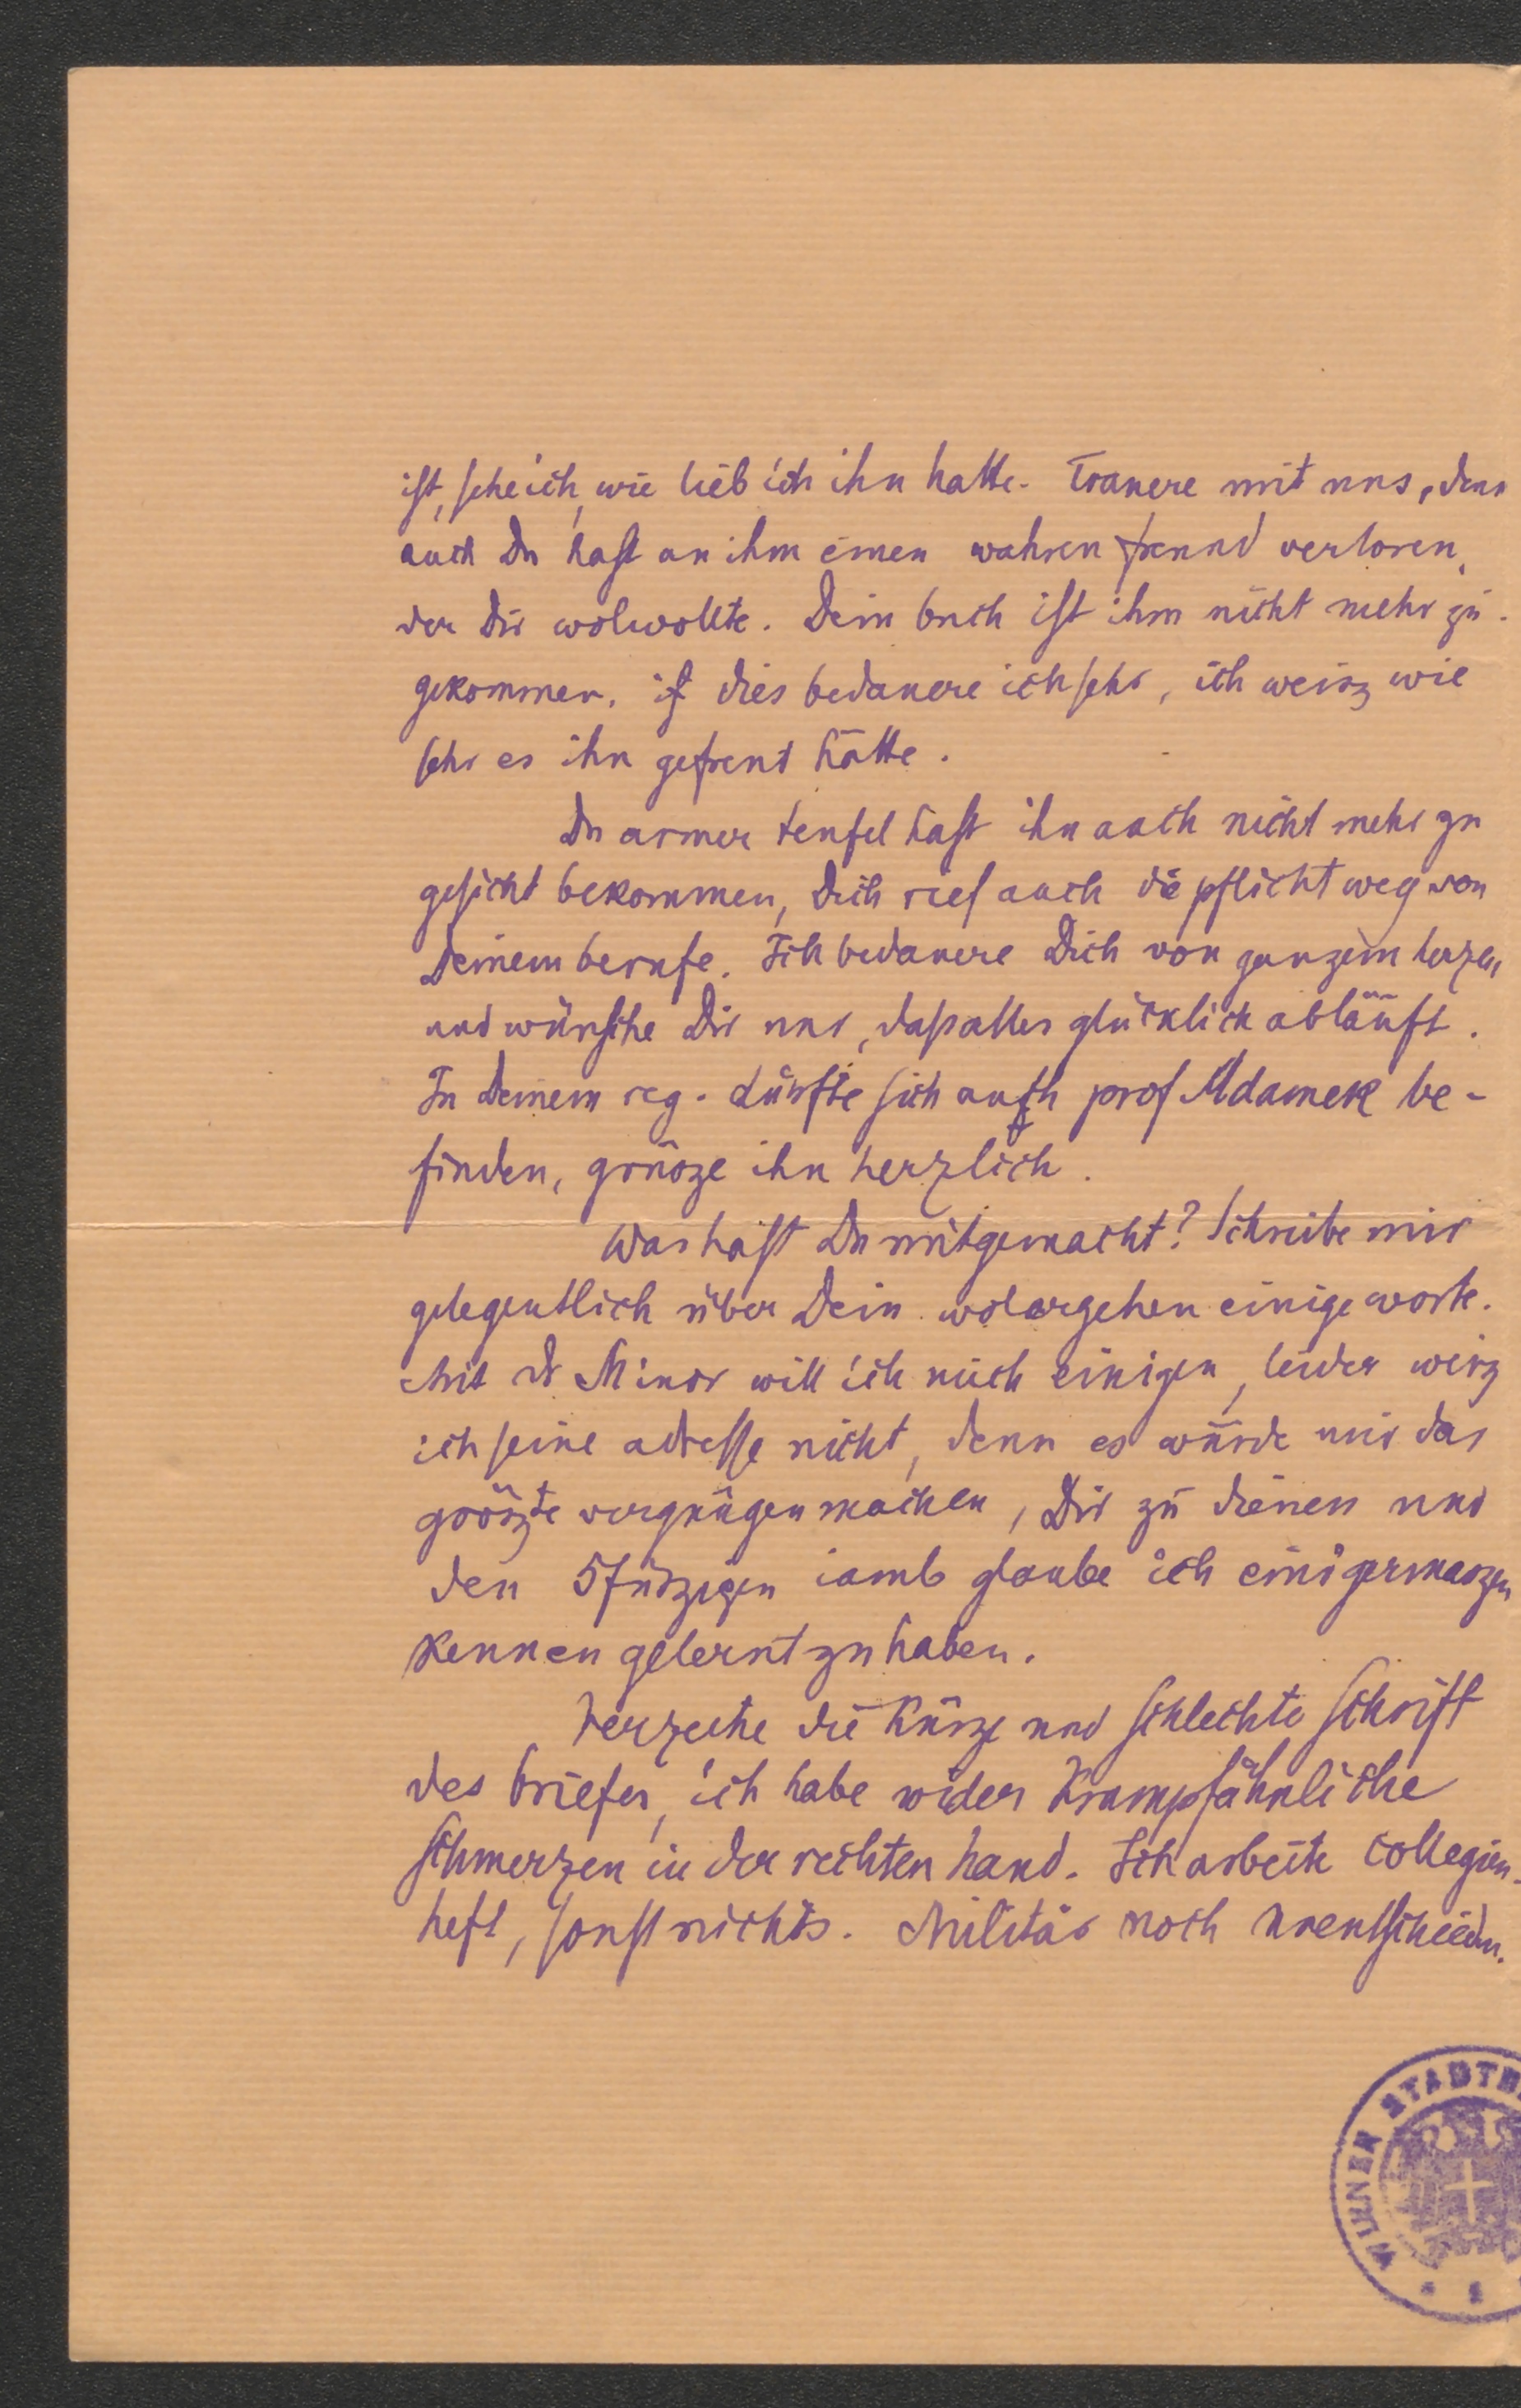 ist, sehe ich, wie lieb ich ihn hatte. Trauere mit uns, denn
auch Du hast an ihm einen wahren freund verloren,
der Dir wolwollte. Dein buch ist ihm nicht mehr zu-
gekommen, dies bedauere ich sehr, ich weisz wie
sehr es ihn gefreut hätte.
Du armer teufel hast ihn auch nicht mehr zu
gesicht bekommen, Dich rief auch die pflicht weg von
Deinem berufe. Ich bedauere Dich von ganzem herzen
und wünsche Dir nur, dass alles glücklich abläuft.
In Deinem reg. dürfte sich auch prof Adamek be-
finden, grüsze ihn herzlich.
Was hast Du mitgemacht? Schreibe mir
gelegentlich über Dein wolergehen einige worte.
Mit Dr Minor will ich mich einigen, leider weisz
ich seine adresse nicht, denn es würde mir das
gröszte vergnügen machen, Dir zu dienen und
den 5füszigen iamb glaube ich einigermaszen
kennen gelernt zu haben.
Verzeihe die Kürze und schlechte schrift
des briefes, ich habe wider krampfähnliche
schmerzen in der rechten hand. Ich arbeite collegien-
heft, sonst nichts. Militär noch unentschieden.
WIENER STADTB